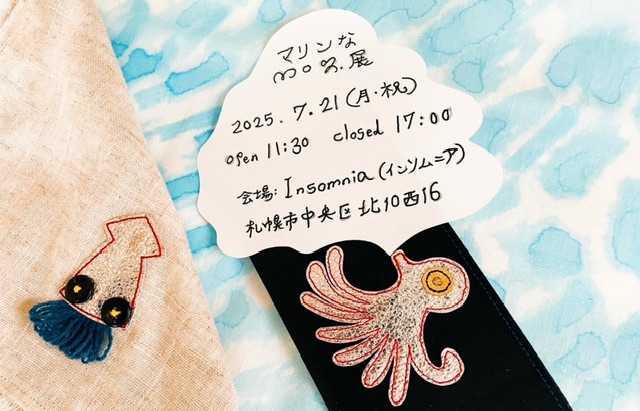 マリンな
moz.展
2025. 7.21(月・祝)
open 11:30 closed 17:00
会場: Insomnia (インソムニア)
札幌市中央区北10西16